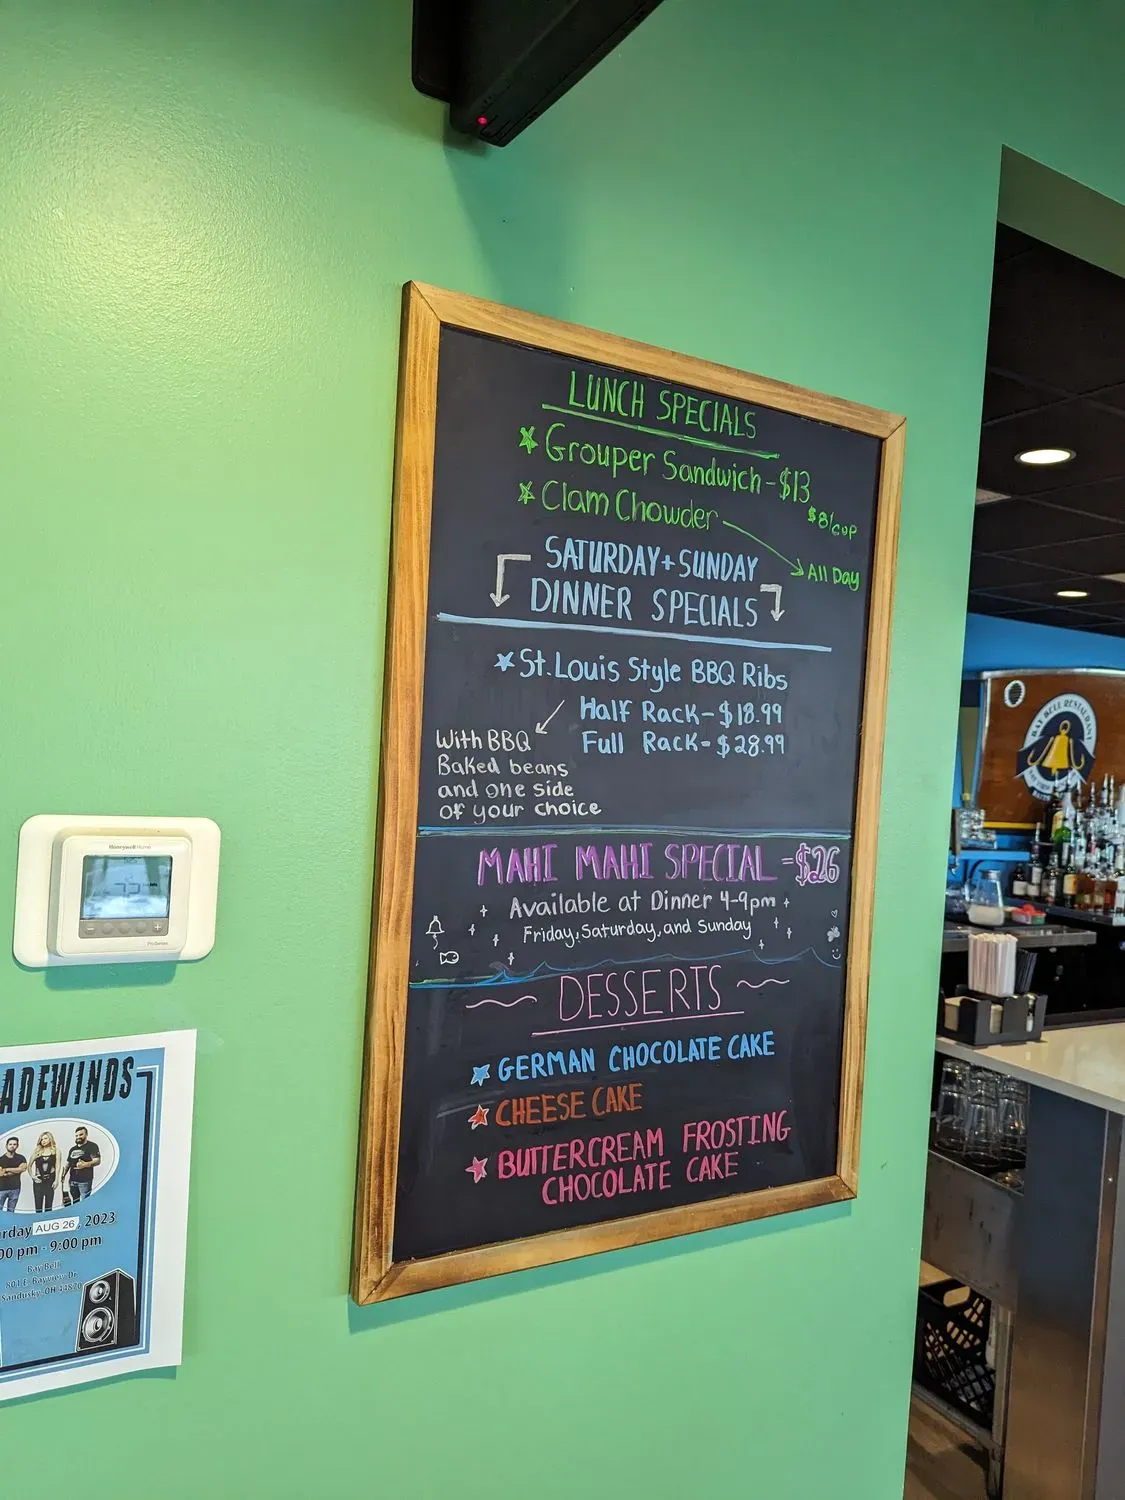 LUNCH SPECIALS
Grouper Sandwich - $13
Clam Chowder
$8/cup
All Day
SATURDAY + SUNDAY
DINNER SPECIALS
St. Louis Style BBQ Ribs
Half Rack - $18.99
Full Rack - $28.99
With BBQ
Baked beans
and one side
of your choice
MAHI MAHI SPECIAL - $26
Available at Dinner 4-9pm
Friday, Saturday, and Sunday
DESSERTS
GERMAN CHOCOLATE CAKE
CHEESE CAKE
BUTTERCREAM FROSTING
CHOCOLATE CAKE
Honeywell Home
75
ProSeries
ADEWINDS
rday AUG 26, 2023
00 pm - 9:00 pm
Bay Bell
801 E. Bayview Dr
Sandusky, OH 44870
BAY BELL RESTAURANT